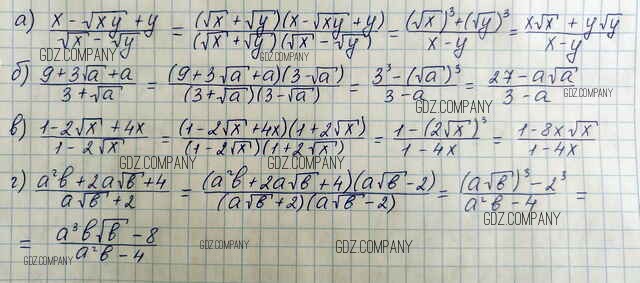 а) (x - √(xy) + y)/(√x - √y) = ((√x + √y)(x - √(xy) + y))/((√x + √y)(√x - √y)) = ((√x)³ + (√y)³)/(x - y) = (x√x + y√y)/(x - y)
GDZ.COMPANY GDZ.COMPANY
б) (9 + 3√a + a)/(3 + √a) = ((9 + 3√a + a)(3 - √a))/((3 + √a)(3 - √a)) = (3³ - (√a)³)/(3 - a) = (27 - a√a)/(3 - a)
GDZ.COMPANY GDZ.COMPANY
в) (1 - 2√x + 4x)/(1 - 2√x) = ((1 - 2√x + 4x)(1 + 2√x))/((1 - 2√x)(1 + 2√x)) = (1 - (2√x)³)/(1 - 4x) = (1 - 8x√x)/(1 - 4x)
GDZ.COMPANY GDZ.COMPANY
г) (a²b + 2a√b + 4)/(a√b + 2) = ((a²b + 2a√b + 4)(a√b - 2))/((a√b + 2)(a√b - 2)) = ((a√b)³ - 2³)/(a²b - 4) =
GDZ.COMPANY
= (a³b√b - 8)/(a²b - 4)
GDZ.COMPANY GDZ.COMPANY GDZ.COMPANY